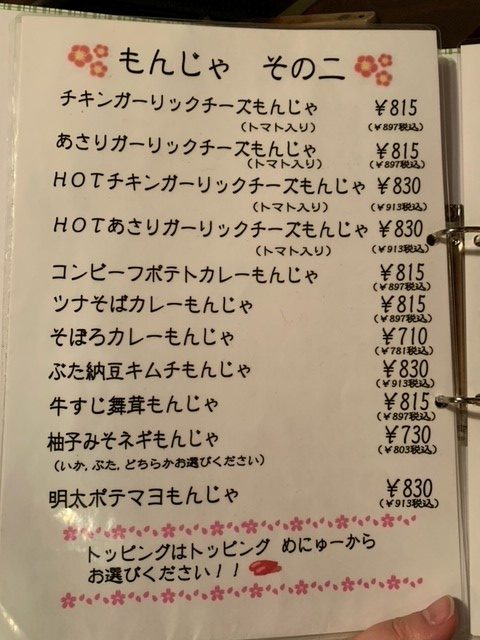 もんじゃ その二
チキンガーリックチーズもんじゃ ￥815
(トマト入り) (￥897税込)
あさりガーリックチーズもんじゃ ￥815
(トマト入り) (￥897税込)
HOTチキンガーリックチーズもんじゃ ￥830
(トマト入り) (￥913税込)
HOTあさりガーリックチーズもんじゃ ￥830
(トマト入り) (￥913税込)
コンビーフポテトカレーもんじゃ ￥815
(￥897税込)
ツナそばカレーもんじゃ ￥815
(￥897税込)
そぼろカレーもんじゃ ￥710
(￥781税込)
ぶた納豆キムチもんじゃ ￥830
(￥913税込)
牛すじ舞茸もんじゃ ￥815
(￥897税込)
柚子みそネギもんじゃ ￥730
(いか,ぶた,どちらかお選びください) (￥803税込)
明太ポテマヨもんじゃ ￥830
(￥913税込)
トッピングはトッピング めにゅーから
お選びください！！